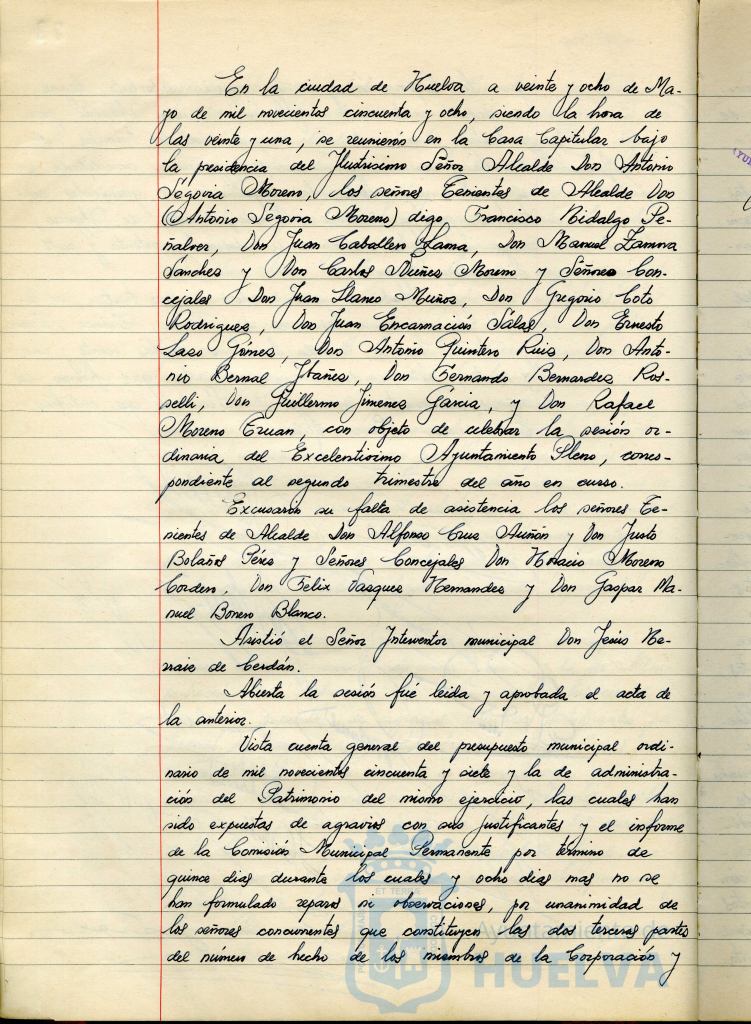 En la ciudad de Huelva a veinte y ocho de Ma-
yo de mil novecientos cincuenta y ocho, siendo la hora de
las veinte y una, se reunieron en la Casa Capitular bajo
la presidencia del Ilustrisimo Señor Alcalde Don Antonio
Segovia Moreno, los señores Tenientes de Alcalde Don
(Antonio Segovia Moreno) digo, Francisco Hidalgo Pe-
ñalver, Don Juan Caballero Lama, Don Manuel Zamora
Sanches y Don Carlos Nuñes Moreno y Señores Con-
cejales Don Juan Llanes Muños, Don Gregorio Coto
Rodrigues, Don Juan Encarnación Sálas, Don Ernesto
Laso Gómes, Don Antonio Quintero Ruis, Don Anto-
nio Bernal Ibañes, Don Fernando Bernardes Ros-
selli, Don Guillermo Jimenes Garcia, y Don Rafael
Moreno Eruan, con objeto de celebrar la sesión or-
dinaria del Excelentisimo Ayuntamiento Pleno, corres-
pondiente al segundo trimestre del año en curso.
Excusaron su falta de asistencia los señores Te-
nientes de Alcalde Don Alfonso Crus Auñón y Don Justo
Bolaños Péres y Señores Concejales Don Horacio Moreno
Cordero, Don Felix Vasques Hernandes y Don Gaspar Ma-
nuel Bonero Blanco.
Asistió el Señor Interventor municipal Don Jesús Na-
rvaes de Cerdán.
Abierta la sesión fué leida y aprobada el acta de
la anterior.
Vista cuenta general del presupuesto municipal ordi-
nario de mil novecientos cincuenta y siete y la de administra-
ción del Patrimonio del mismo ejercicio, las cuales han
sido expuestas de agravios con sus justificantes y el informe
de la Comisión Municipal Permanente por término de
quince dias durante los cuales y ocho dias mas no se
han formulado reparos ni observaciones, por unanimidad de
los señores concurrentes que constituyen las dos terceras partes
del número de hecho de los miembros de la Corporación y
Ayuntamiento de
HUELVA